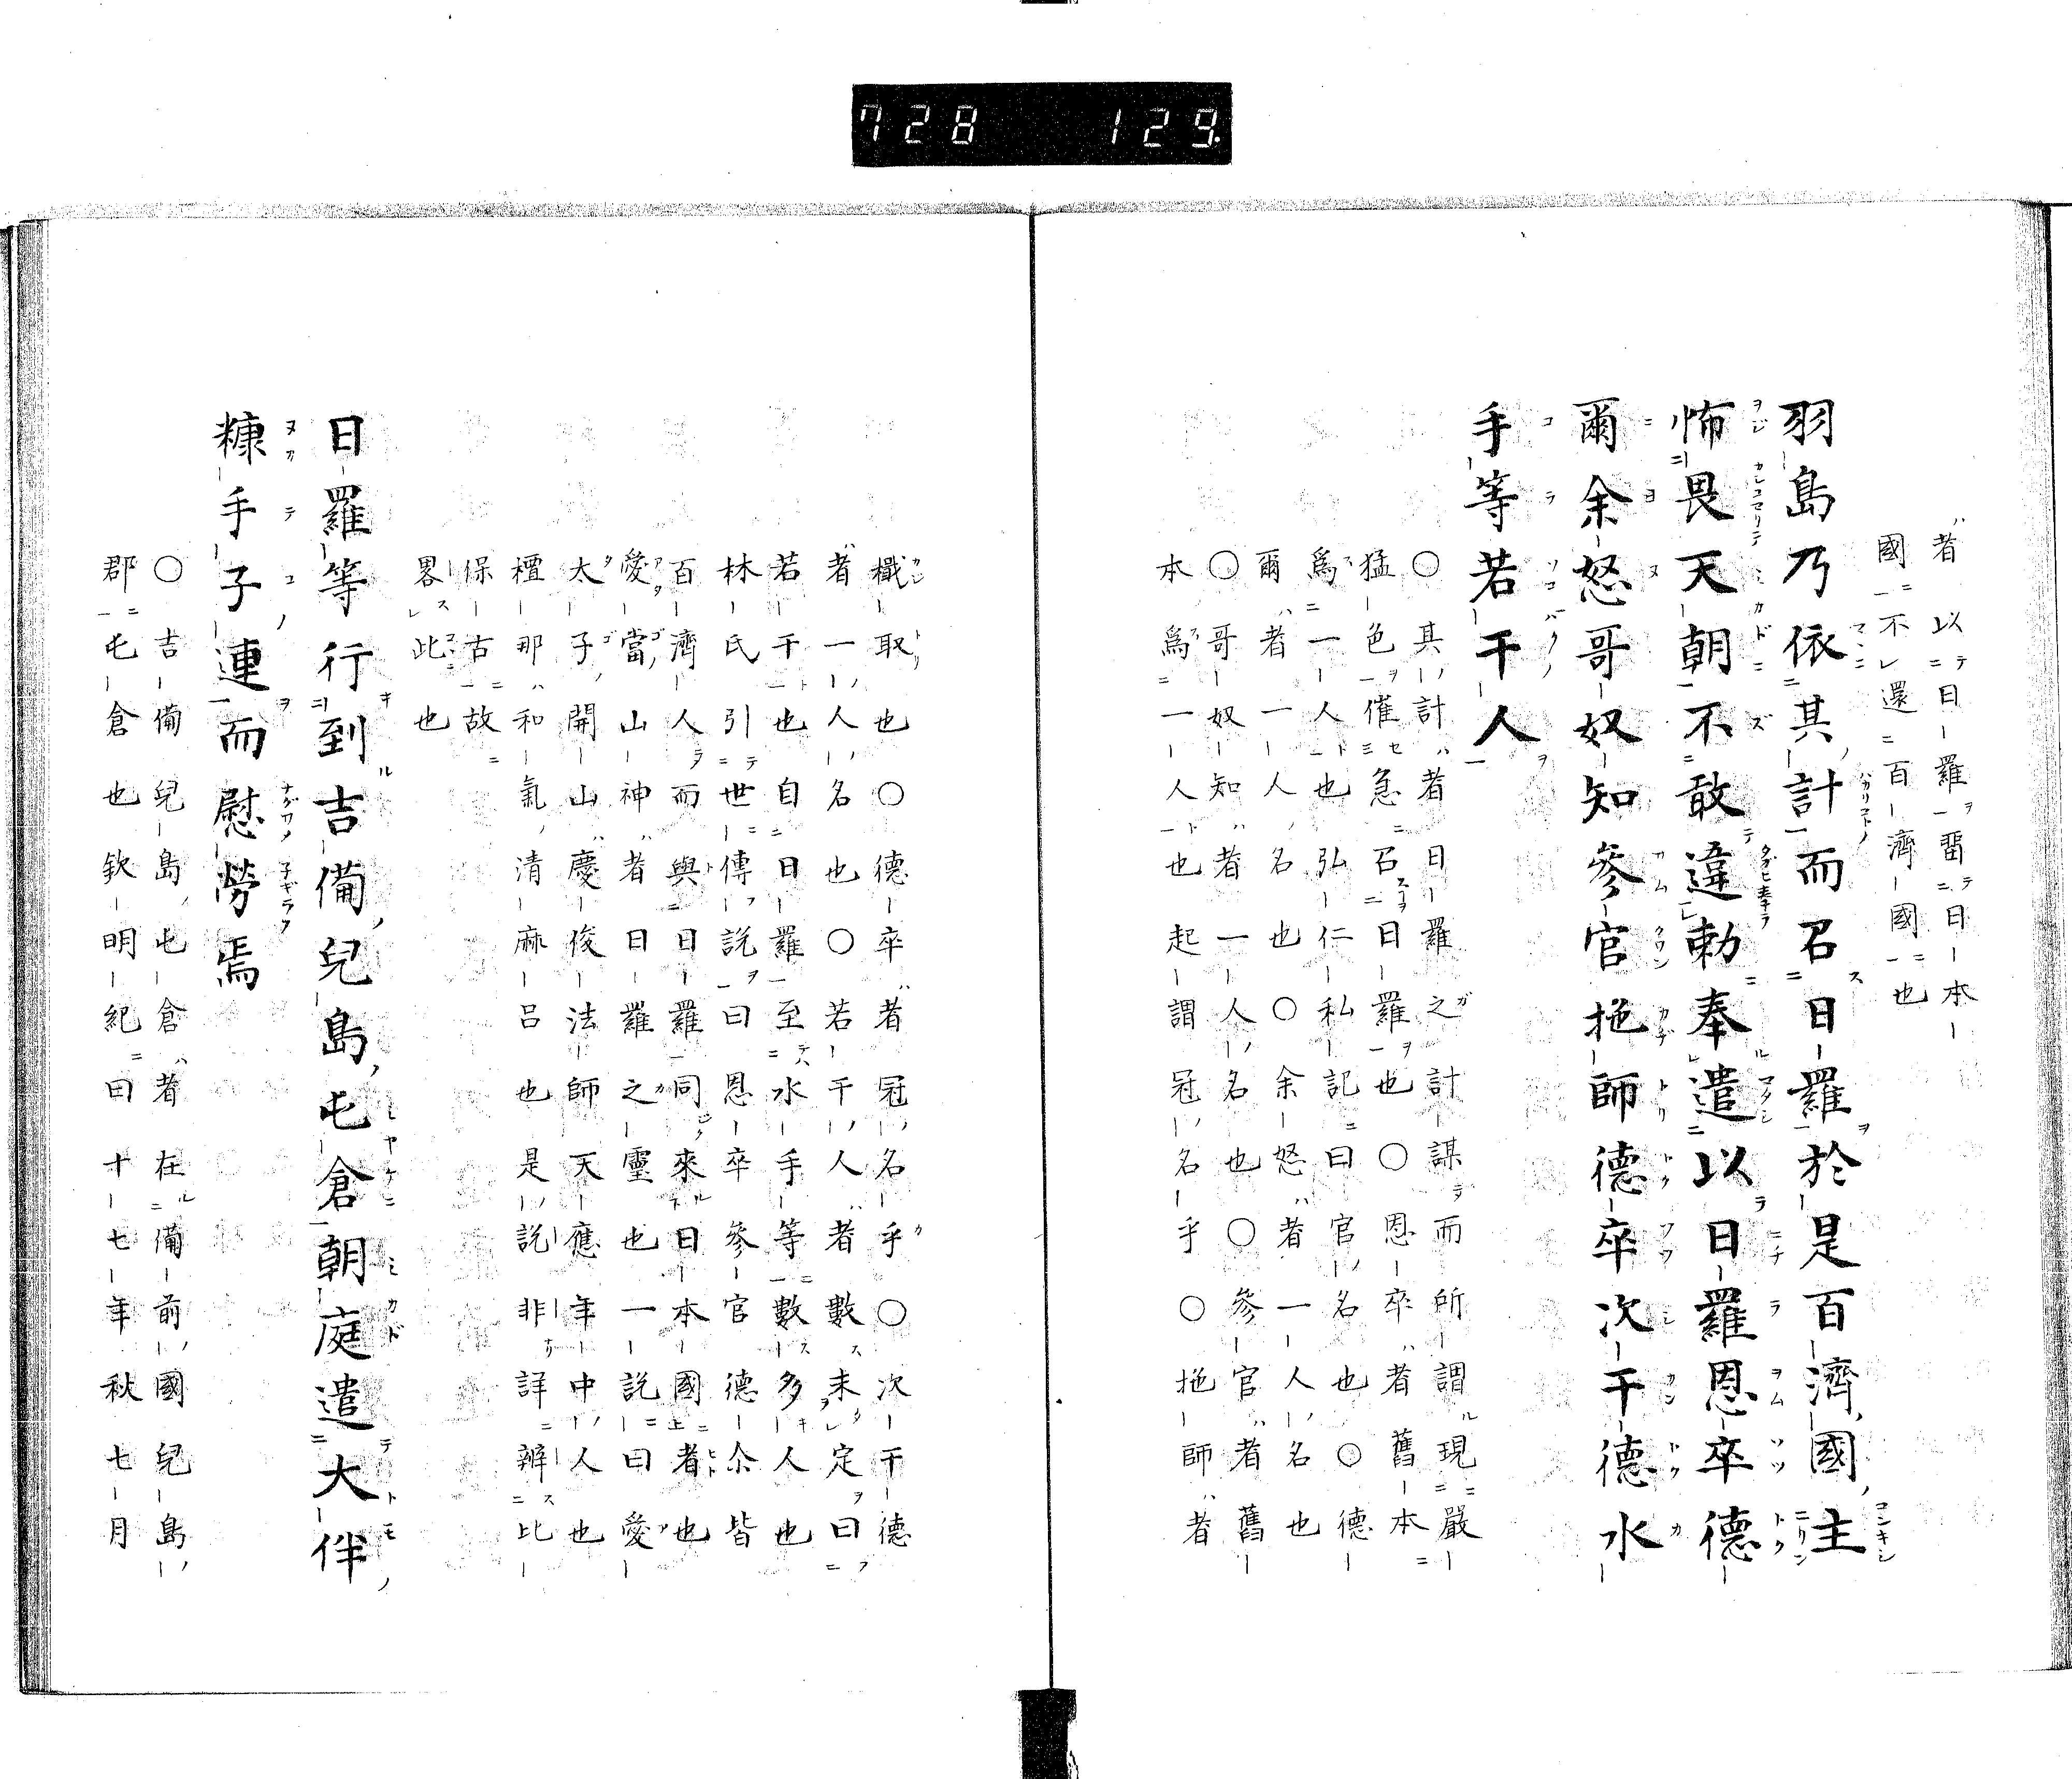 728 129
者以日羅畱日本
國不還百濟國也
羽島乃依其計而召日羅於是百濟國主
怖畏天朝不敢違勅奉遣以日羅恩卒德
爾余怒哥奴知參官拖師德卒次干德水
手等若干人
○其計者日羅之計謀而所謂現嚴
猛色催急召日羅也○恩卒者舊本
爲一人也弘仁私記曰官名也○德
爾者一人名也○余怒者一人名也
○哥奴知者一人名也○參官者舊
本爲一人也起謂冠名乎○拖師者
檝取也○德卒者冠名乎○次干德
者一人名也○若干人者數未定曰
若干也自日羅至水手等數多人也
林氏引世傳說曰恩卒參官德尒皆
百濟人而與日羅同來日本國者也
愛當山神者日羅之靈也一說曰愛
太子開山慶俊法師天應年中人也
檀那和氣清麻呂也是說非詳辨比
保古故
畧此也
日羅等行到吉備兒島屯倉朝庭遣大伴
糠手子連而慰勞焉
○吉備兒島屯倉者在備前國兒島
郡屯倉也欽明紀曰十七年秋七月